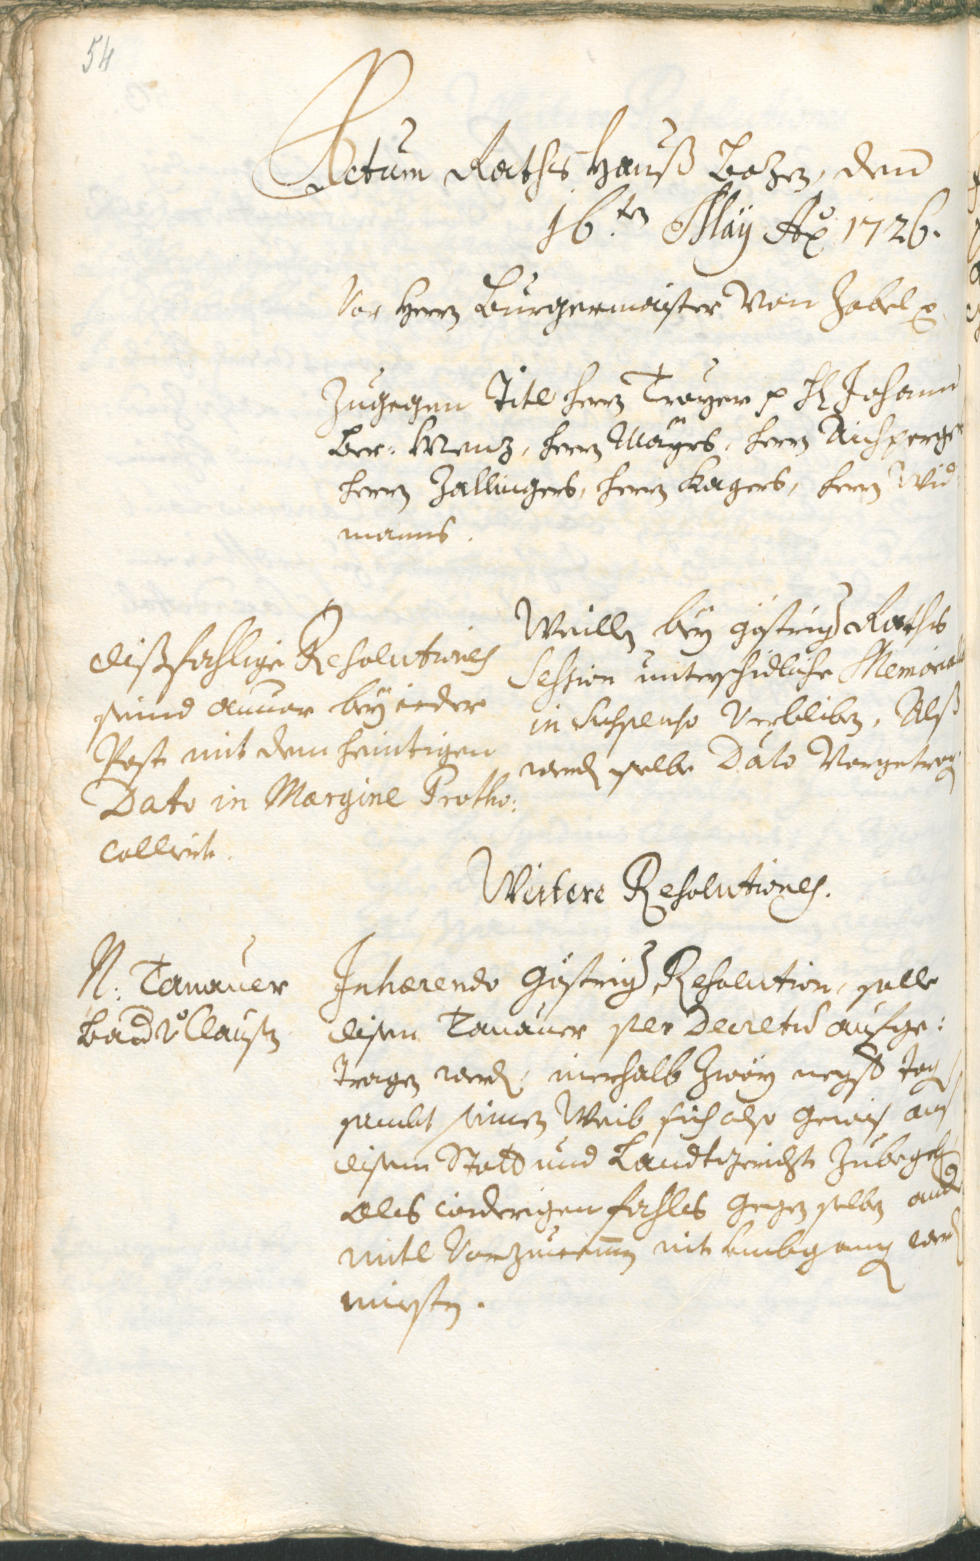 54
Actum Raths Hauß Bozen, den
16.ten May Ao 1726.
Vor Herrn Burgermaister Von Zobel p
Zugegen Titl herrn Troyer p H: Johann
herrn Mayrs, herrn Aichperger
herrn Zallingers, herrn Kagers, herrn Wid
manns.
dißfahlige Resolutiones
seind anvor bey ieder
Post mit dem heintigen
Dato in Margine Protho:
collirt.
Weillen bey gestrig Raths
Session unterschidliche Memorial
in Suspenso Verbliben, Alß
werden selbe Dato Vorgetrag
Weitere Resolutiones.
N: Tanauer
Inhærendo gestrig Resolution, solle
disem Tanauer per Decretum aufge:
tragen werden, inerhalb zwey negst tag
sambt seinen Weib sich also gewis aus
disem Statt und Landtgericht zubegeben
als widerigen fahls gegen selben and
mitl Vorzunemmen nit umbgang werd
miesten.